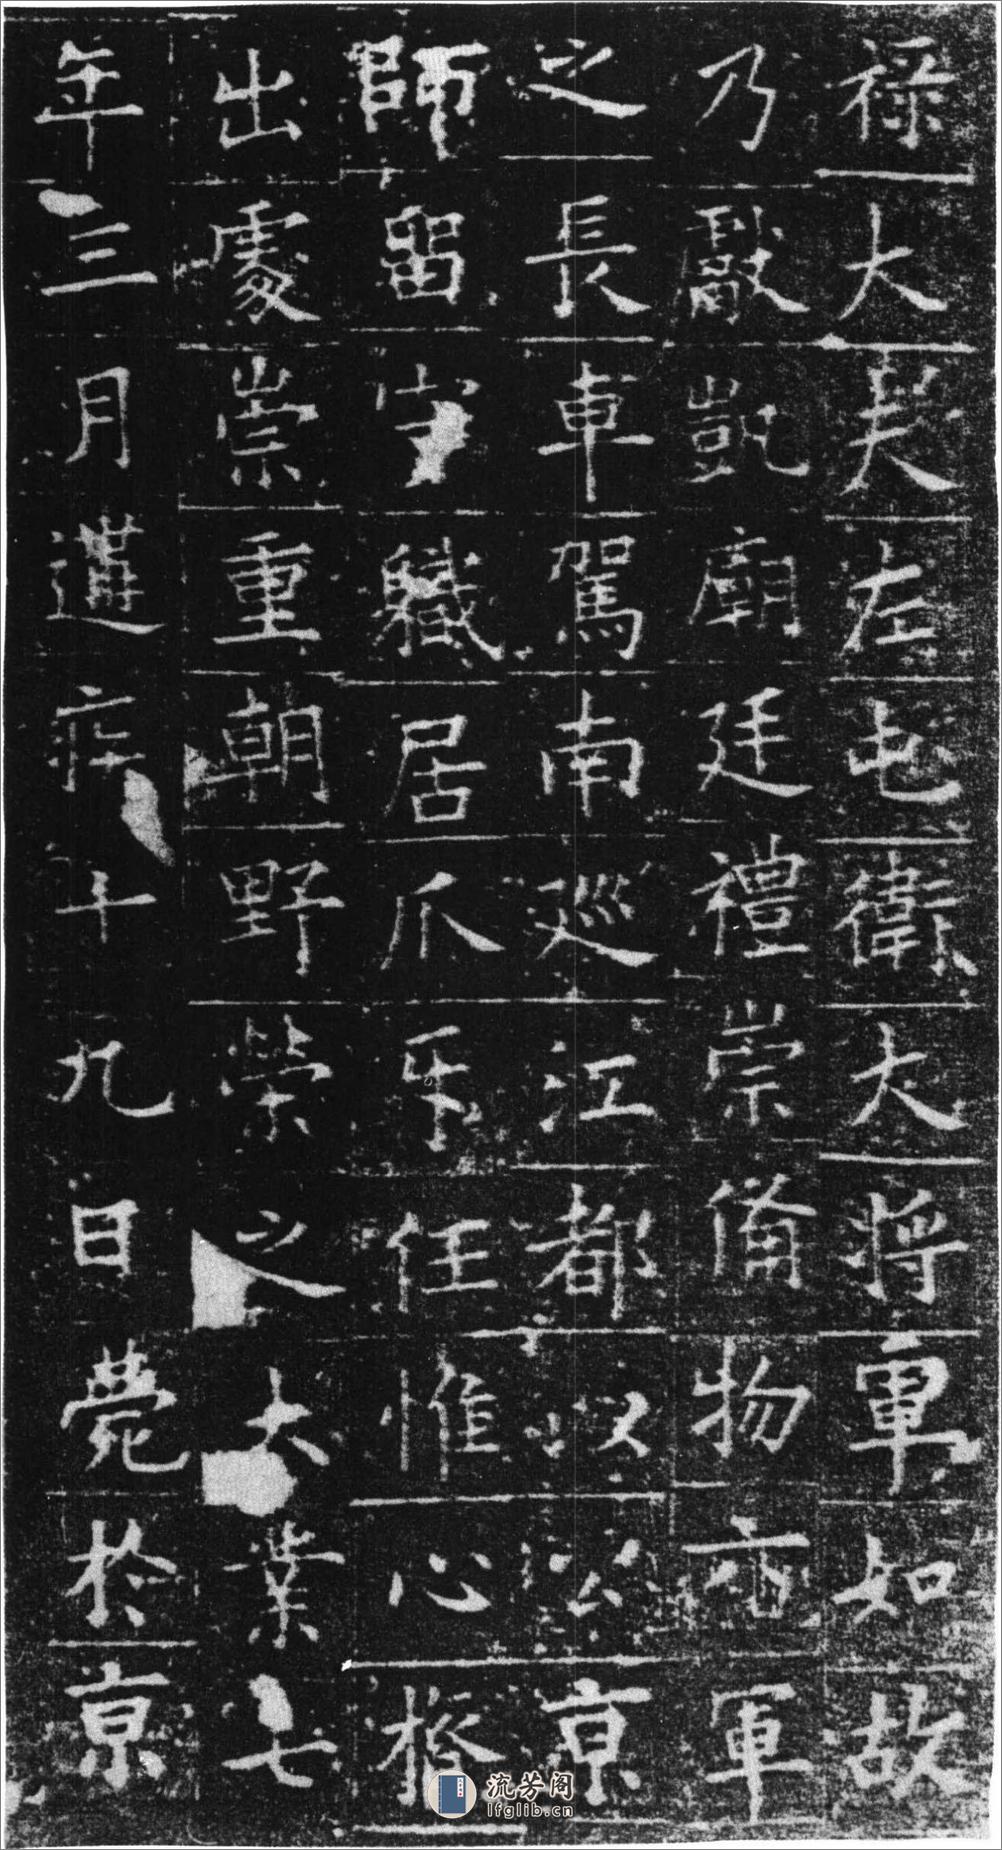 祿大夫左屯衛大將軍如故
乃獻凱廟廷禮崇備物六軍
之長車駕南巡江都以公京
師留守職居爪牙任惟心膂
出處崇重朝野榮之大業七
年三月遘疾十九日薨於京
流芳阁
lfglib.cn